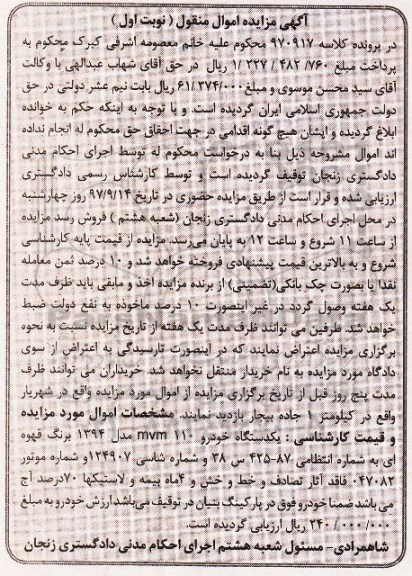 آگهی مزایده اموال منقول ( نوبت اول )
در پرونده کلاسه ۹۷۰۹۱۷ محکوم علیه خانم معصومه اشرفی کبرک محکوم به
پرداخت مبلغ ۷۶۰/ ۴۸۲ / ۲۲۷ / ۱ ریال در حق آقای شهاب عبدالهی با وکالت
آقای سید محسن موسوی و مبلغ ۶۱/۳۷۴/۰۰۰ ریال بابت نیم عشر دولتی در حق
دولت جمهوری اسلامی ایران گردیده است. و با توجه به اینکه حکم به خوانده
ابلاغ گردیده و ایشان هیچ گونه اقدامی در جهت احقاق حق محکوم له انجام نداده
اند اموال مشروحه ذیل بنا به درخواست محکوم له توسط اجرای احکام مدنی
دادگستری زنجان توقیف گردیده است و توسط کارشناس رسمی دادگستری
ارزیابی شده و قرار است از طریق مزایده حضوری در تاریخ ۹۷/۹/۱۴ روز چهارشنبه
در محل اجرای احکام مدنی دادگستری زنجان (شعبه هشتم ) فروش رسد مزایده
از ساعت ۱۱ شروع و ساعت ۱۲ به پایان می‌رسد. مزایده از قیمت پایه کارشناسی
شروع و به بالاترین قیمت پیشنهادی فروخته خواهد شد و ۱۰ درصد ثمن معامله
نقدا یا بصورت چک بانکی(تضمینی) از برنده مزایده اخذ و مابقی باید ظرف مدت
یک هفته وصول گردد در غیر اینصورت ۱۰ درصد ماخوذه به نفع دولت ضبط
خواهد شد. طرفین می توانند ظرف مدت یک هفته از تاریخ مزایده نسبت به نحوه
برگزاری مزایده اعتراض نمایند که در اینصورت تارسیدگی به اعتراض از سوی
دادگاه مورد مزایده به نام خریدار منتقل نخواهد شد. خریداران می توانند ظرف
مدت پنج روز قبل از تاریخ برگزاری مزایده از اموال مورد مزایده واقع در شهریار
واقع در کیلومتر ۱ جاده بیجار بازدید نمایند. مشخصات اموال مورد مزایده
و قیمت کارشناسی : یکدستگاه خودرو mvm ۱۱۰ مدل ۱۳۹۴ برنگ قهوه
ای به شماره انتظامی ۸۷-۴۲۵ س ۳۸ و شماره شاسی ۱۲۴۹۰۷و شماره موتور
۰۴۷۰۸۲ فاقد آثار تصادف و خط و خش و ۴ماه بیمه و لاستیکها ۷۰درصد آج
می باشد ضمنا خودرو فوق در پارکینگ بنیان در توقیف می‌باشد ارزش خودرو به مبلغ
۲۴۰/۰۰۰/۰۰۰ ریال ارزیابی گردیده است.
شاهمرادی- مسئول شعبه هشتم اجرای احکام مدنی دادگستری زنجان